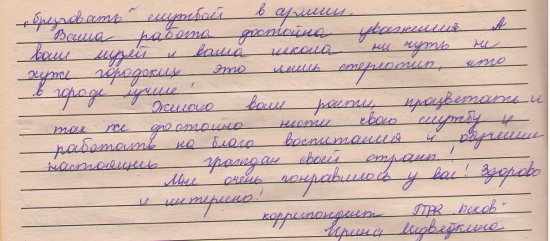 „брезговать" службой в армии.
Ваша работа достойна уважения. А
ваш музей и ваша школа ни чуть не
хуже городских. Это лишь стереотип, что
в городе лучше!
Желаю вам расти, процветать и
так же достойно нести свою службу и
работать на благо воспитания и обучения
настоящих граждан своей страны!
Мне очень понравилось у вас! Здорово
и интересно!
корреспондент ГТРК "Псков"
Ирина